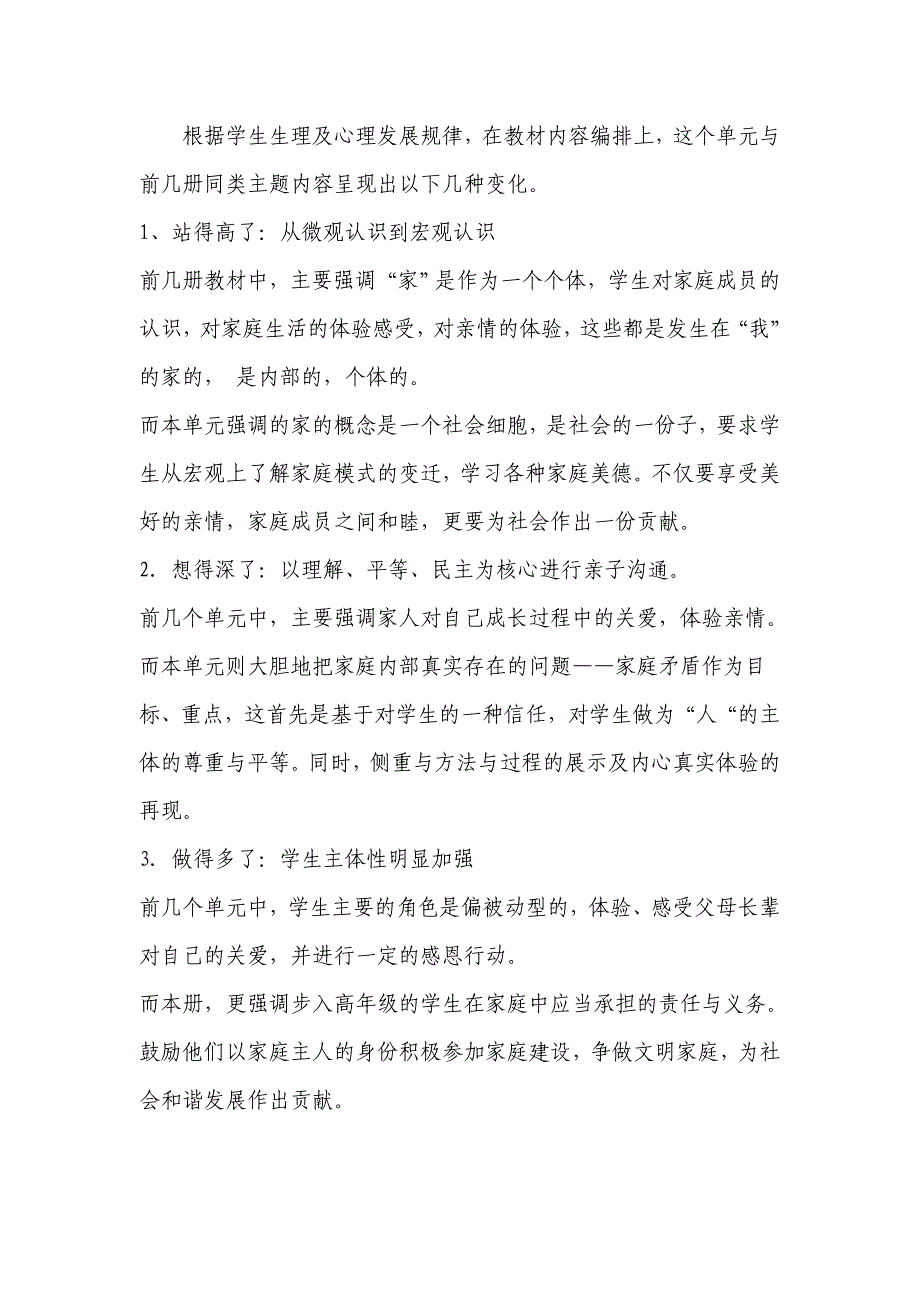 根据学生生理及心理发展规律，在教材内容编排上，这个单元与
前几册同类主题内容呈现出以下几种变化。
1、站得高了：从微观认识到宏观认识
前几册教材中，主要强调“家”是作为一个个体，学生对家庭成员的
认识，对家庭生活的体验感受，对亲情的体验，这些都是发生在“我”
的家的， 是内部的，个体的。
而本单元强调的家的概念是一个社会细胞，是社会的一份子，要求学
生从宏观上了解家庭模式的变迁，学习各种家庭美德。不仅要享受美
好的亲情，家庭成员之间和睦，更要为社会作出一份贡献。
2. 想得深了：以理解、平等、民主为核心进行亲子沟通。
前几个单元中，主要强调家人对自己成长过程中的关爱，体验亲情。
而本单元则大胆地把家庭内部真实存在的问题——家庭矛盾作为目
标、重点，这首先是基于对学生的一种信任，对学生做为“人“的主
体的尊重与平等。同时，侧重与方法与过程的展示及内心真实体验的
再现。
3. 做得多了：学生主体性明显加强
前几个单元中，学生主要的角色是偏被动型的，体验、感受父母长辈
对自己的关爱，并进行一定的感恩行动。
而本册，更强调步入高年级的学生在家庭中应当承担的责任与义务。
鼓励他们以家庭主人的身份积极参加家庭建设，争做文明家庭，为社
会和谐发展作出贡献。